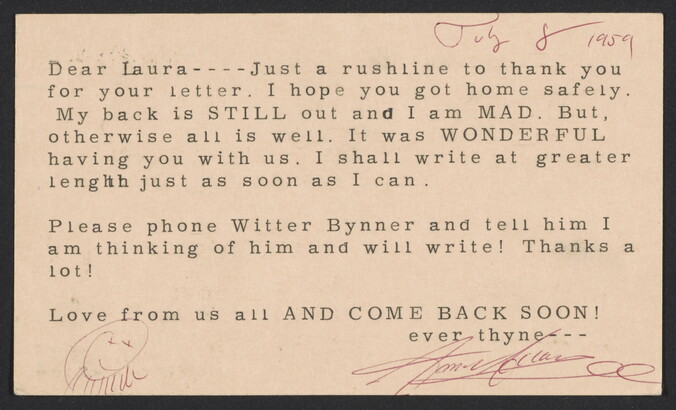 July 8 1959
Dear Laura----Just a rushline to thank you
for your letter. I hope you got home safely.
My back is STILL out and I am MAD. But,
otherwise all is well. It was WONDERFUL
having you with us. I shall write at greater
lenghth just as soon as I can.
Please phone Witter Bynner and tell him I
am thinking of him and will write! Thanks a
lot!
Love from us all AND COME BACK SOON!
ever thyne---